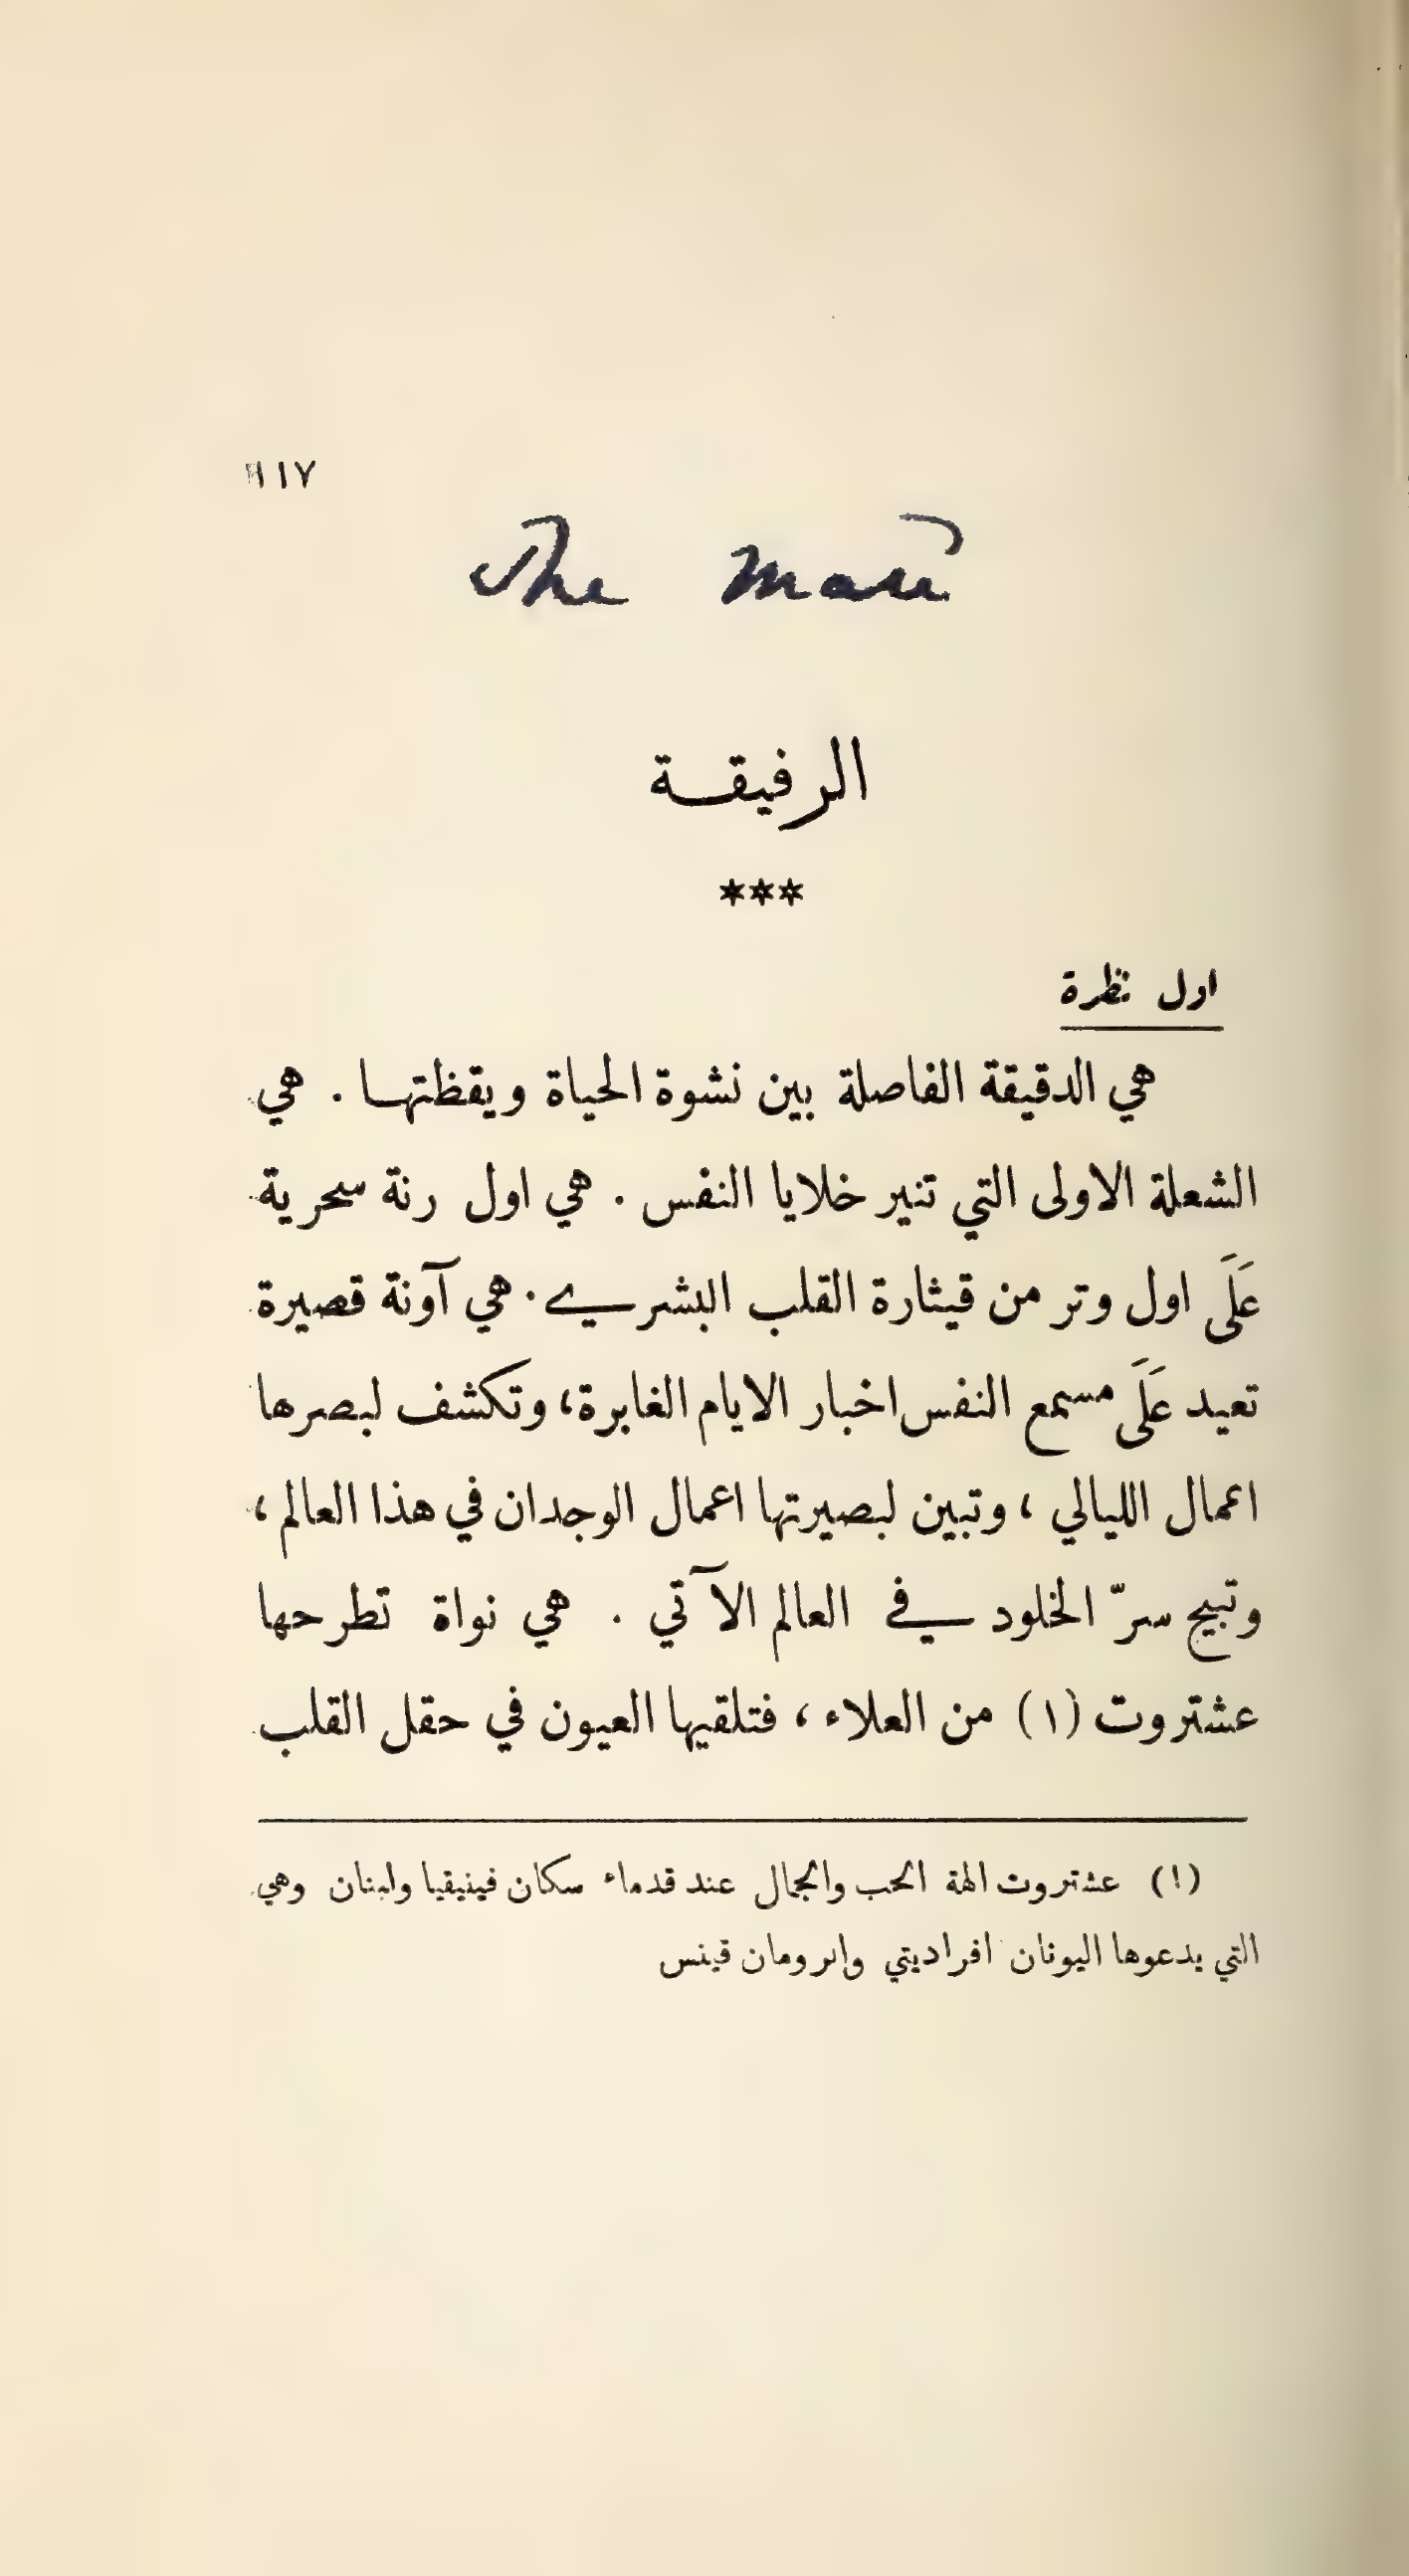 ١١٧
The Mate
الرفيقة
***
اول نظرة
هي الدقيقة الفاصلة بين نشوة الحياة ويقظتها . هي
الشعلة الاولى التي تنير خلايا النفس . هي اول رنة سحرية
عَلَى اول وتر من قيثارة القلب البشري . هي آونة قصيرة
تعيد عَلَى مسمع النفس اخبار الايام الغابرة ، وتكشف لبصرها
اعمال الليالي ، وتبين لبصيرتها اعمال الوجدان في هذا العالم ،
وتبيح سرّ الخلود في العالم الآتي . هي نواة تطرحها
عشتروت (١) من العلاء ، فتلقيها العيون في حقل القلب
(١) عشتروت الهة الحب والجمال عند قدماء سكان فينيقيا ولبنان وهي
التي يدعوها اليونان افراديتي والرومان فينس